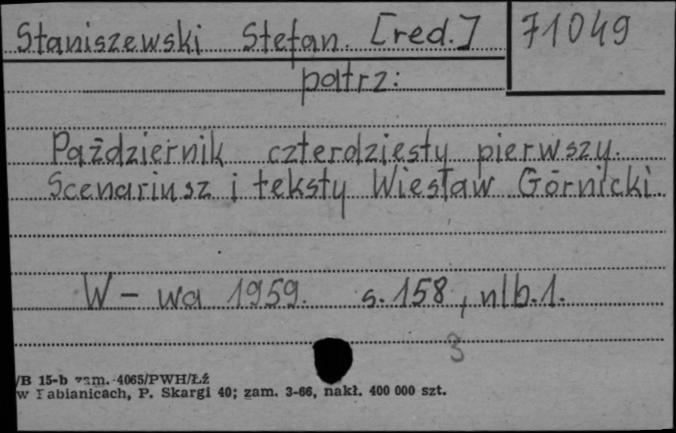 Staniszewski Stefan. [red.] 71049
patrz:
Październik czterdziesty pierwszy.
Scenariusz i teksty Wiesław Górnicki.
W-wa 1959. s. 158, nlb. 1.
3
/B 15-b zam. 4065/PWH/Łź
w Pabianicach, P. Skargi 40; zam. 3-66, nakł. 400 000 szt.